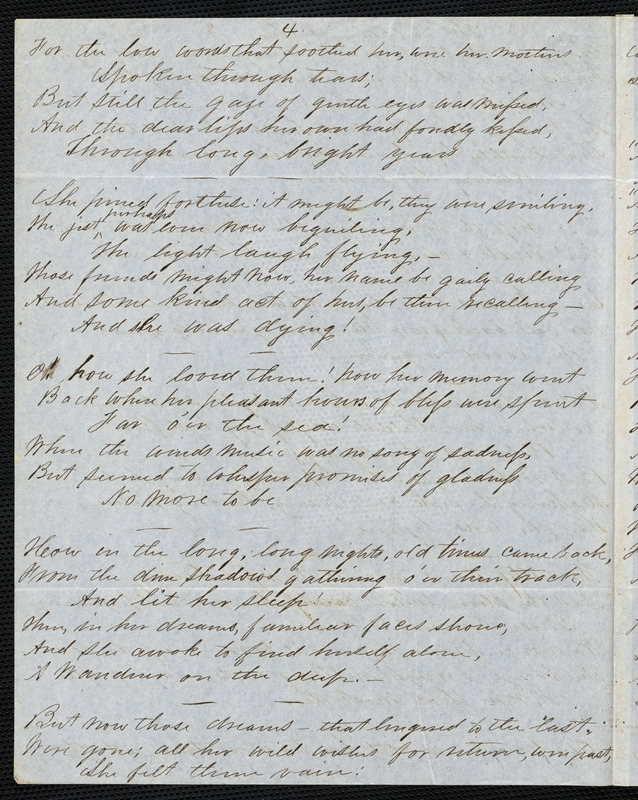 4
For the low words that soothed her, were her mother's
Spoken through tears;
But still the gaze of gentle eyes was missed,
And the dear lips her own had fondly kissed,
Through long, bright years
She pined for these: it might be, they were smiling,
The jest, perhaps was even now beguiling,
The light laugh flying, —
Those friends might now, her name be gaily calling
And some kind act of hers, be then recalling —
And she was dying!
Oh how she loved them! how her memory went
Back when her pleasant hours of bliss were spent
Far o'er the sea!
When the winds music was no song of sadness,
But seemed to whisper promises of gladness
No more to be
How in the long, long nights, old times came back,
From the dim shadows gathering o'er their track,
And lit her sleep!
Then, in her dreams, familiar faces shone,
And she awoke to find herself alone,
A Wanderer on the deep. —
But now those dreams — that lingered to the last,
Were gone; all her wild wishes for return, were past,
She felt them vain: